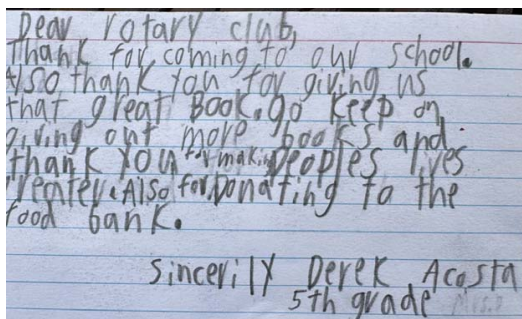 Dear rotary club,
Thank for coming to our school.
Also thank you for giving us
that great Book. go keep on
giving out more books and
thank you for making peoples lives
greater. Also for Donating to the
food bank.
Sincerily Derek Acosta
5th grade Mrs.D